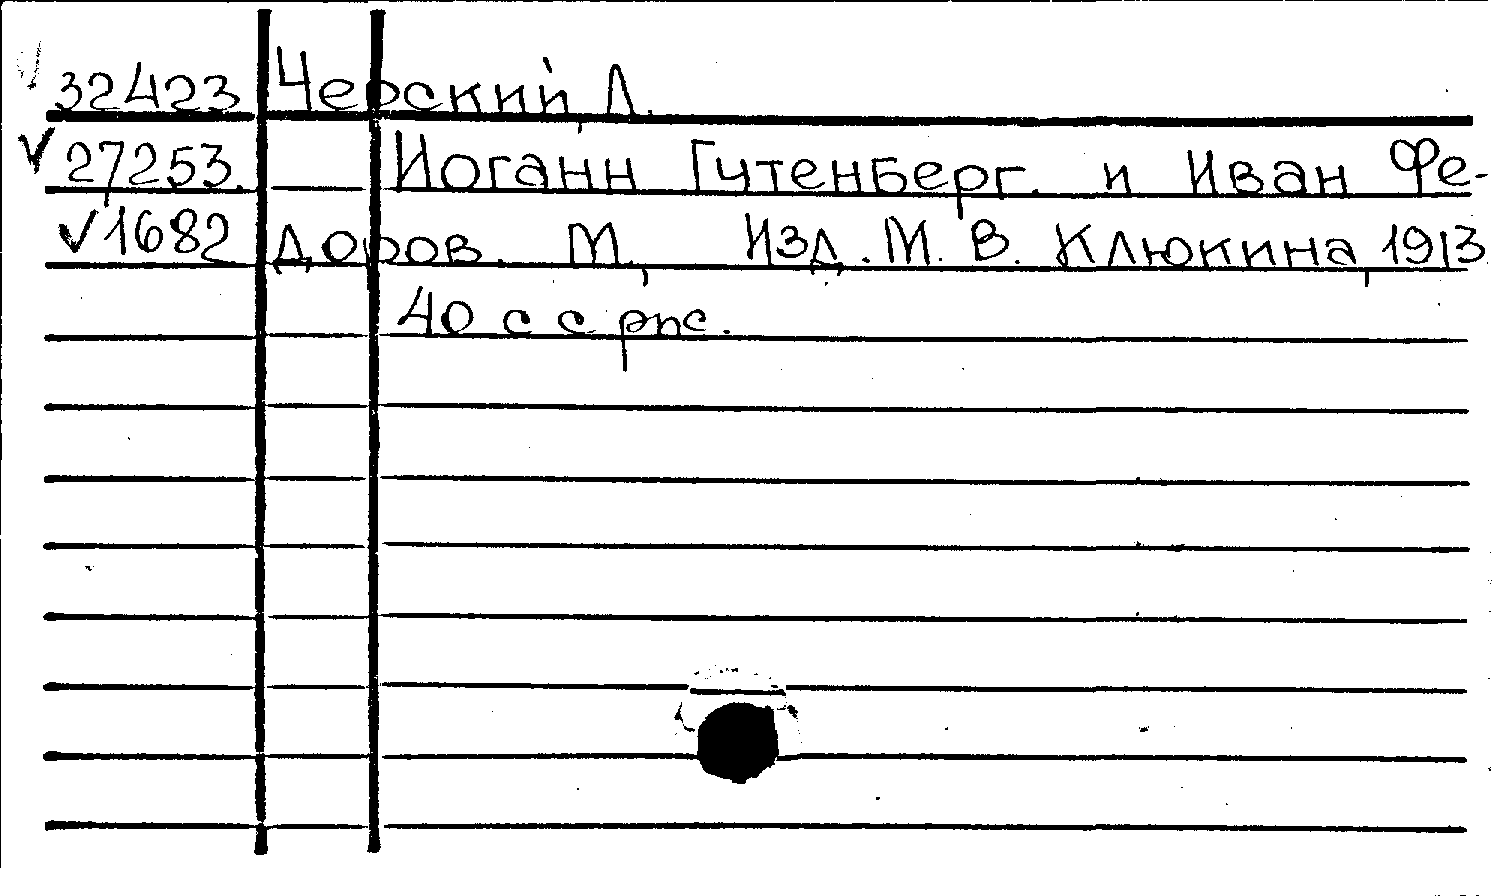 √ 32423 Черский, Л.
√ 27253. Иоганн Гутенберг. и Иван Фе-
√ 1682 доров. М., Изд. М. В. Клюкина, 1913
40 с с рис.